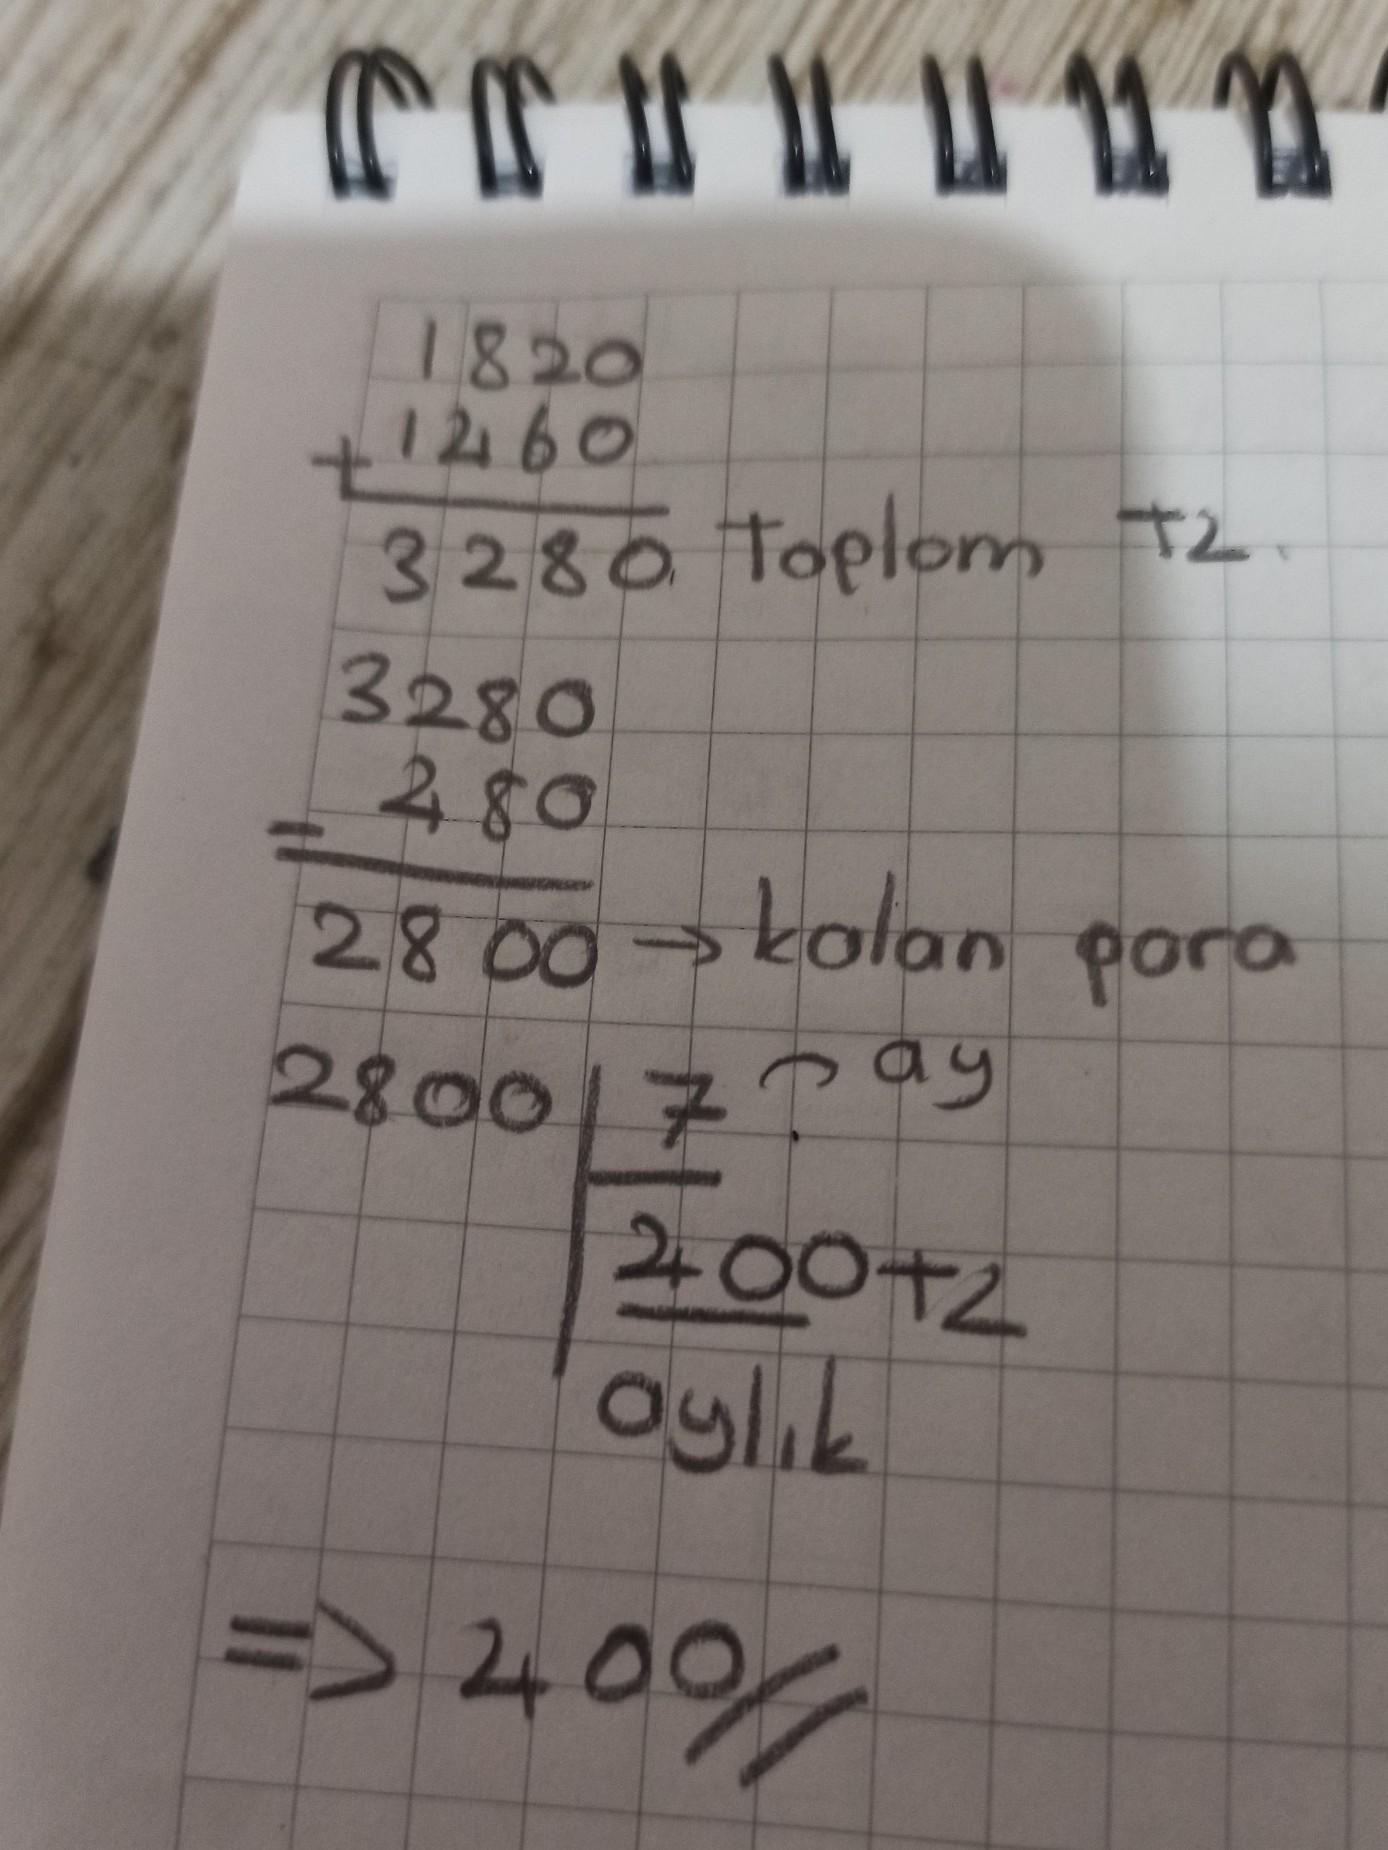 1820
+ 1460
3280 Toplam TL.
3280
- 480
2800 → kalan para
2800 | 7 → ay
400 TL
aylık
=> 400//